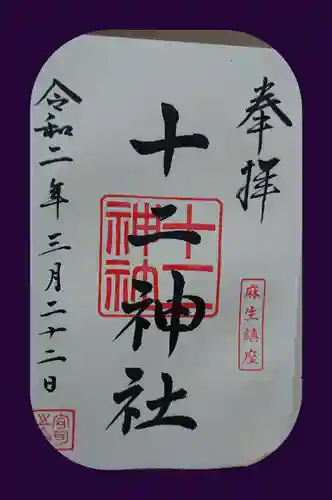 奉拝
麻生鎮座
十二神社
十二神社
令和二年三月二十二日